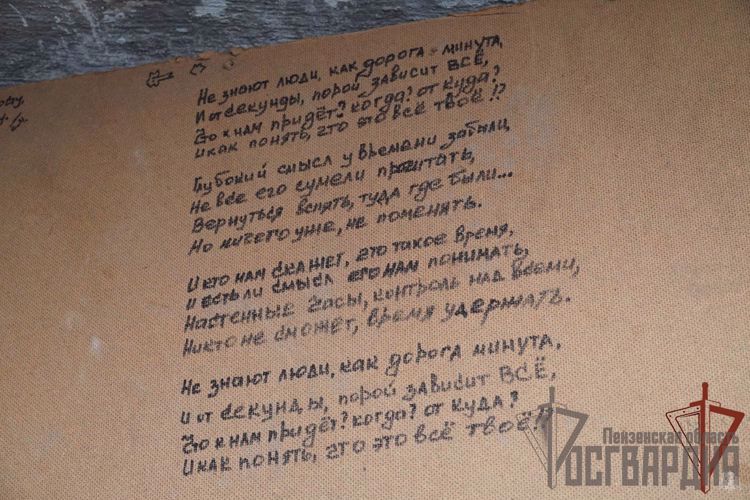 Не знают люди, как дорога минута,
И от секунды, порой зависит ВСЁ,
Что к нам придёт? когда? от куда?
И как понять, что это всё твоё!?
Глубокий смысл у времени забыли,
Не все его сумели прочитать,
Вернуться вспять, туда где были...
Но ничего уже, не поменять.
И кто нам скажет, что такое время,
и есть ли смысл его нам понимать,
Настенные часы, контроль над всеми,
Никто не сможет, время удержать.
Не знают люди, как дорога минута,
и от секунды, порой зависит ВСЁ,
Что к нам придёт? когда? от куда?
И как понять, что это всё твоё!?
Пензенская область
РОСГВАРДИЯ